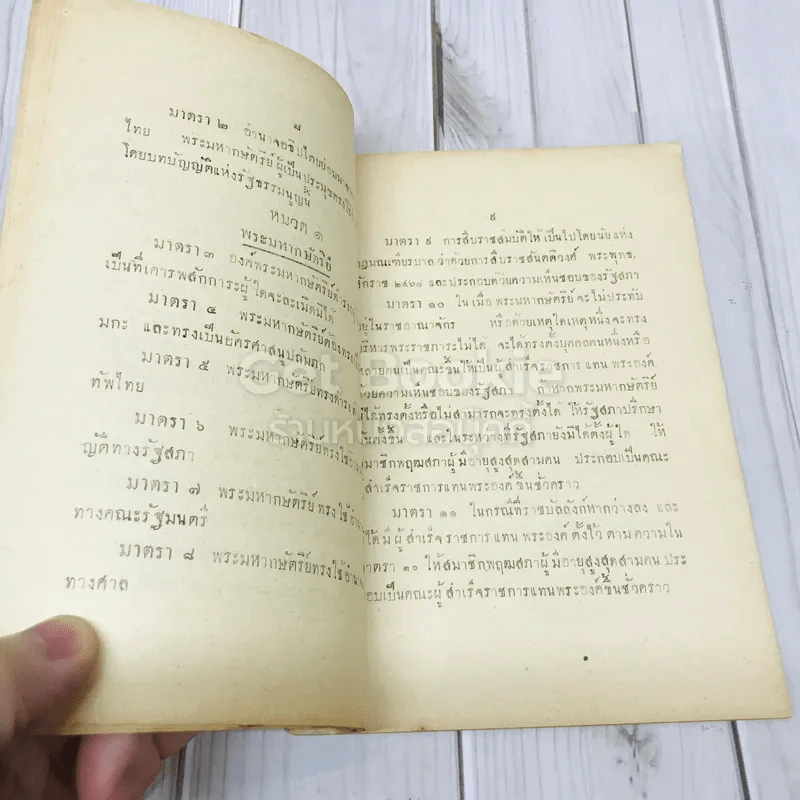 ๘
มาตรา ๒ อำนาจอธิปไตยย่อมมาจาก
ไทย พระมหากษัตริย์ผู้เป็นประมุขทรงใช้
โดยบทบัญญัติแห่งรัฐธรรมนูญนี้
หมวด ๑
พระมหากษัตริย์
มาตรา ๓ องค์พระมหากษัตริย์ดำรงอยู่
เป็นที่เคารพสักการะผู้ใดจะละเมิดมิได้
มาตรา ๔ พระมหากษัตริย์ต้องทรงเป็น
มกะ และทรงเป็นอัครศาสนูปถัมภก
มาตรา ๕ พระมหากษัตริย์ทรงดำรง
ทัพไทย
มาตรา ๖ พระมหากษัตริย์ทรงใช้
ญัติทางรัฐสภา
มาตรา ๗ พระมหากษัตริย์ทรงใช้อำ
ทางคณะรัฐมนตรี
มาตรา ๘ พระมหากษัตริย์ทรงใช้อำนา
ทางศาล
๙
มาตรา ๙ การสืบราชสมบัติให้เป็นไปโดยนัยแห่ง
กฎมณเฑียรบาล ว่าด้วยการสืบราชสันตติวงศ์ พระพุทธ
ศักราช ๒๔๖๗ และประกอบด้วยความเห็นชอบของรัฐสภา
มาตรา ๑๐ ในเมื่อพระมหากษัตริย์จะไม่ประทับ
อยู่ในราชอาณาจักร หรือด้วยเหตุใดเหตุหนึ่งจะทรง
บริหารพระราชภาระไม่ได้ จะได้ทรงตั้งบุคคลคนหนึ่งหรือ
หลายคนเป็นคณะขึ้นให้เป็นผู้สำเร็จราชการแทนพระองค์
ด้วยความเห็นชอบของรัฐสภา ถ้าหากพระมหากษัตริย์
มิได้ทรงตั้งหรือไม่สามารถจะทรงตั้งได้ ให้รัฐสภาปรึกษา
กันตั้งขึ้น และในระหว่างที่รัฐสภายังมิได้ตั้งผู้ใด ให้
สมาชิกพฤฒสภาผู้มีอายุสูงสุดสามคน ประกอบเป็นคณะ
ผู้สำเร็จราชการแทนพระองค์ขึ้นชั่วคราว
มาตรา ๑๑ ในกรณีที่ราชบัลลังก์หากว่างลง และ
มิได้มีผู้สำเร็จราชการแทนพระองค์ตั้งไว้ตามความใน
มาตรา ๑๐ ให้สมาชิกพฤฒสภาผู้มีอายุสูงสุดสามคน ประ
กอบเป็นคณะผู้สำเร็จราชการแทนพระองค์ขึ้นชั่วคราว
Get Bookie